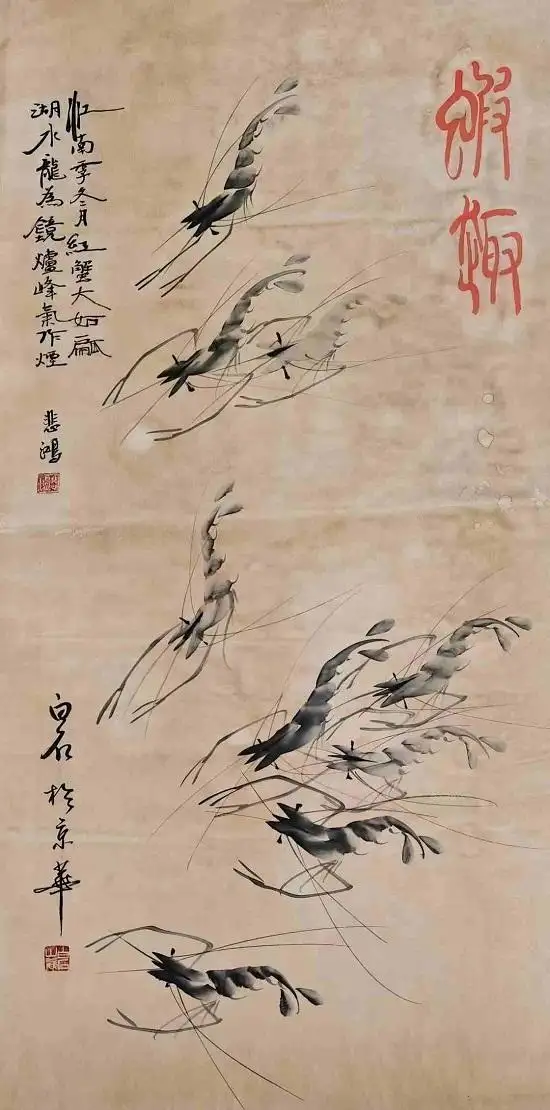 蝦趣
江南季冬月紅蟹大如甂
湖水龍為鏡爐峰氣作煙
悲鴻
白石於京華